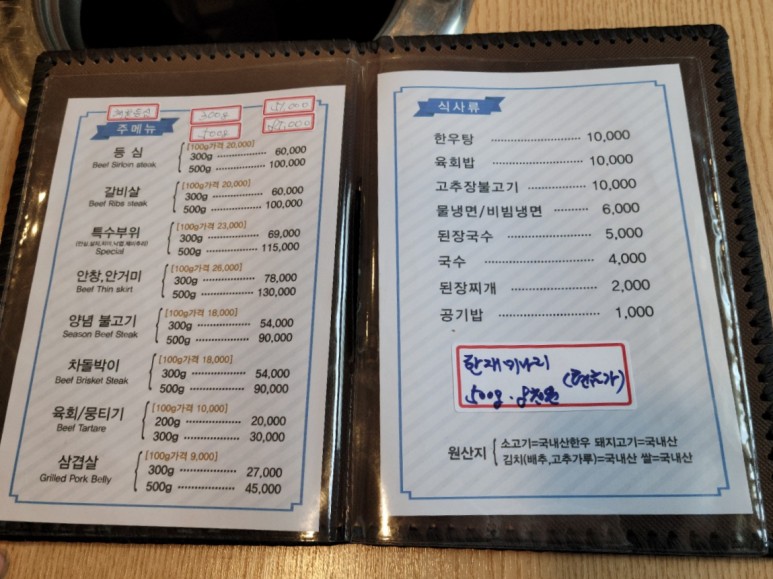 300g 51,000
주메뉴 500g 85,000
등 심 [100g가격 20,000]
Beef Sirloin ateak 300g 60,000
500g 100,000
갈비살 [100g가격 20,000]
Beef Ribs steak 300g 60,000
500g 100,000
특수부위 [100g가격 23,000]
300g 69,000
Special 500g 115,000
안창,안거미 [100g가격 26,000]
Beef Thin skirt 300g 78,000
500g 130,000
양념 불고기 [100g가격 18,000]
Season Beef Steak 300g 54,000
500g 90,000
차돌박이 [100g가격 18,000]
Beef Brisket Steak 300g 54,000
500g 90,000
육회/뭉티기 [100g가격 10,000]
Beef Tartare 200g 20,000
300g 30,000
삼겹살 [100g가격 9,000]
Grilled Pork Belly 300g 27,000
500g 45,000
식사류
한우탕 10,000
육회밥 10,000
고추장불고기 10,000
물냉면/비빔냉면 6,000
된장국수 5,000
국수 4,000
된장찌개 2,000
공기밥 1,000
한재미나리
500g
원산지 소고기=국내산한우 돼지고기=국내산
김치(배추,고추가루)=국내산 쌀=국내산